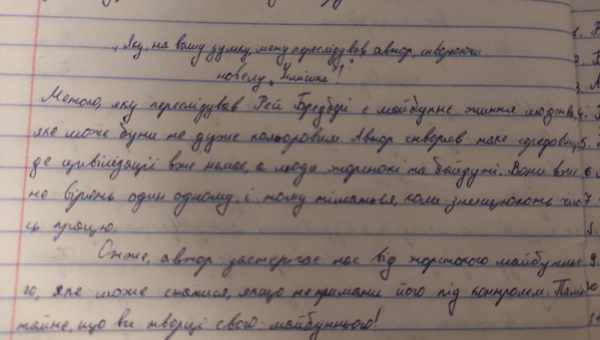 „Яку, на вашу думку, мету переслідував автор, створюючи
новелу „Усмішка"?"
Метою, яку переслідував Рей Бредбері є майбутнє життя людства,
яке може бути не дуже кольоровим. Автор створив таке середовище,
де цивілізації вже немає, а люди жорстокі та байдужі. Вони вже
не вірять один одному і тому тішаться, коли знищюють чию
сь працю.
Отже, автор застерігає нас від жорстокого майбутньо
го, яке може статися, якщо не тримати його під контролем. Пам'я
тайте, що ви творці свого майбутнього!